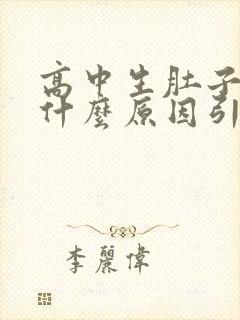 高中生肚子
什麼原因引
李麗偉